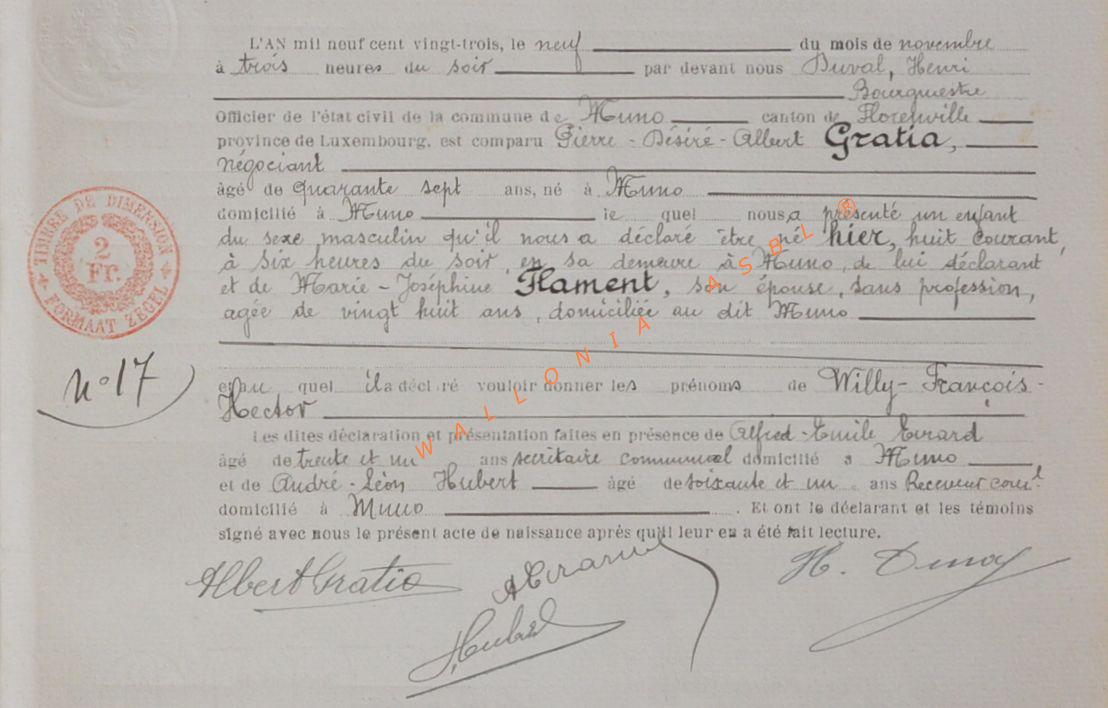 L'AN mil neuf cent vingt-trois, le neuf du mois de novembre
à trois heures du soir par devant nous Duval, Henri
Bourgmestre
Officier de l'état civil de la commune de Muno canton de Florenville
province de Luxembourg, est comparu Pierre - Désiré - Albert Gratia,
négociant
âgé de quarante sept ans, né à Muno
domicilié à Muno le quel nous a présenté un enfant
du sexe masculin qu'il nous a déclaré être né hier, huit courant,
à six heures du soir, en sa demeure à Muno, de lui déclarant
et de Marie - Joséphine Flament, son épouse, sans profession,
agée de vingt huit ans, domiciliée au dit Muno
et au quel il a déclaré vouloir donner les prénoms de Willy - François -
Hector
Les dites déclaration et présentation faites en présence de Alfred - Emile Evrard
âgé de trente et un ans secrétaire communal domicilié à Muno
et de André - Léon Hubert âgé de soixante et un ans Receveur com.l
domicilié à Muno. Et ont le déclarant et les témoins
signé avec nous le présent acte de naissance après qu'il leur en a été fait lecture.
Albert Gratia
Hubert
H. Duval
TIMBRE DE DIMENSION
2
Fr.
FORMAAT ZEGEL
N° 17
WALLONIA ASBL ®